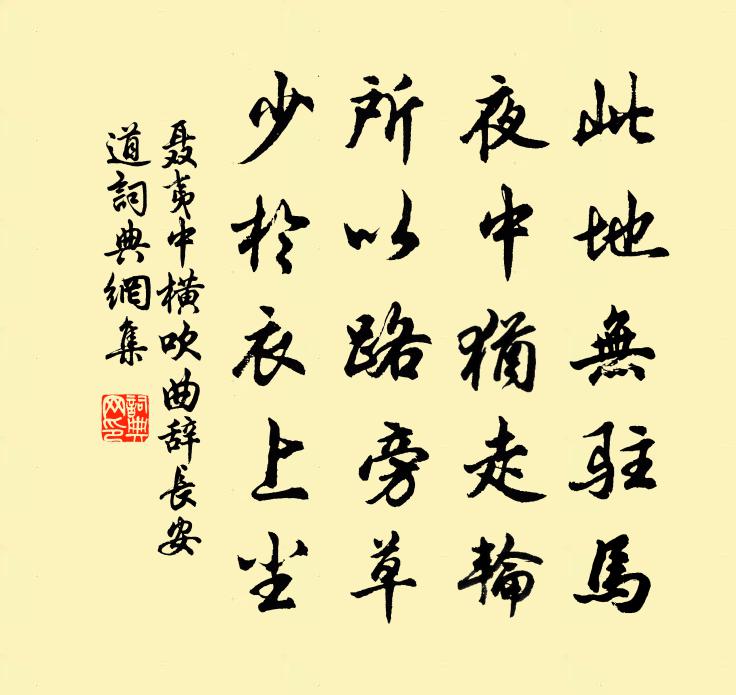 此地無駐馬
夜中猶走輪
所以路旁草
少於衣上尘
聂夷中横吹曲辞長安
道詞典網集
詞典网印